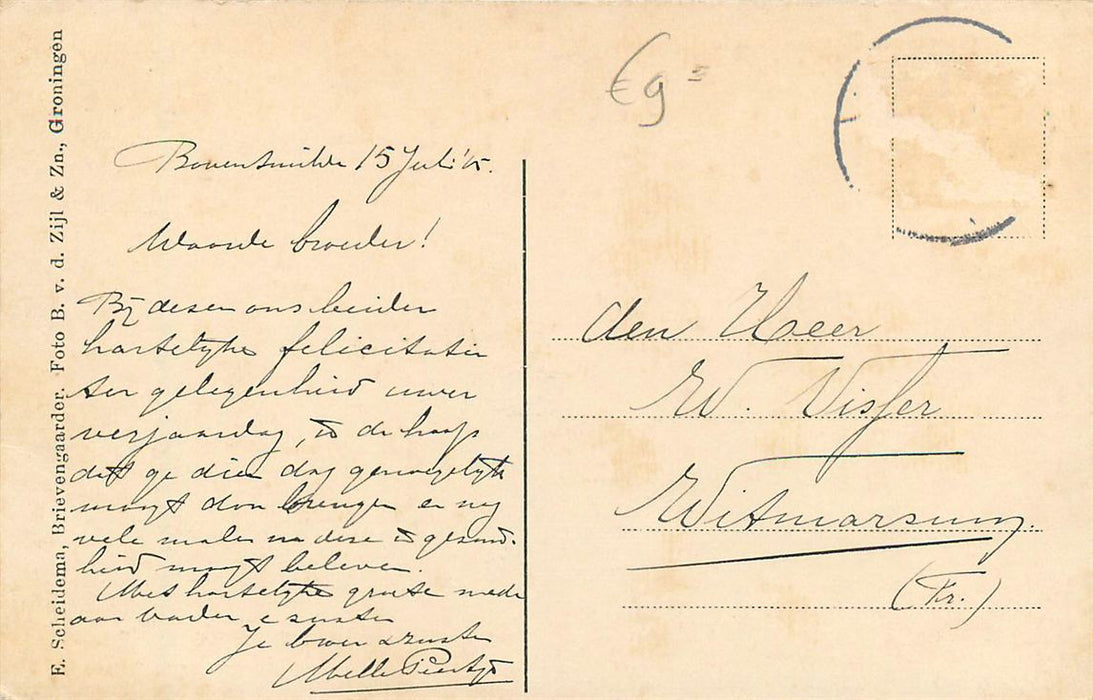 E. Scheidema, Brievengaarder. Foto B. v. d. Zijl & Zn., Groningen
€ 9
Bovensmilde 15 Juli '15.
Waarde broeder!
Bij desen ons beider
hartelijke felicitatie
ter gelegenheid uwer
verjaardag, is de hoop
dat ge dien dag genoegelijk
moogt doorbrengen en nog
vele malen na deze is gezond-
heid moogt beleven.
Met hartelijke groete mede
aan vader e zuster
Je broer & zuster
Melle
den Heer
W. Visser
Witmarsum.
(Fr.)